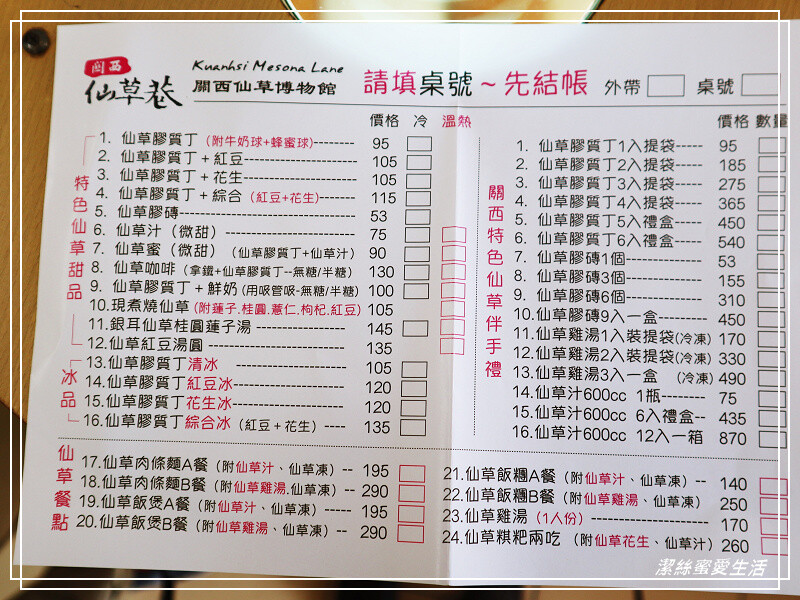 關西
仙草巷
Kuanhsi Mesona Lane
關西仙草博物館
請填桌號~先結帳 外帶 桌號
價格 冷 溫熱
特色仙草甜品
1. 仙草膠質丁(附牛奶球+蜂蜜球)-------- 95
2. 仙草膠質丁+紅豆------------------- 105
3. 仙草膠質丁+花生------------------- 105
4. 仙草膠質丁+綜合(紅豆+花生)------- 115
5. 仙草膠磚----------------------------- 53
6. 仙草汁(微甜)--------------------- 75
7. 仙草蜜(微甜)(仙草膠質丁+仙草汁) 90
8. 仙草咖啡(拿鐵+仙草膠質丁--無糖/半糖) 130
9. 仙草膠質丁+鮮奶(用吸管吸-無糖/半糖) 100
10.現煮燒仙草(附蓮子.桂圓.薏仁.枸杞.紅豆) 105
11.銀耳仙草桂圓蓮子湯 --------------- 145
12.仙草紅豆湯圓 --------------------- 135
冰品
13.仙草膠質丁清冰 ------------------- 105
14.仙草膠質丁紅豆冰------------------ 120
15.仙草膠質丁花生冰------------------ 120
16.仙草膠質丁綜合冰(紅豆+花生)---- 135
價格 數量
關西特色仙草伴手禮
1. 仙草膠質丁1入提袋----- 95
2. 仙草膠質丁2入提袋----- 185
3. 仙草膠質丁3入提袋----- 275
4. 仙草膠質丁4入提袋----- 365
5. 仙草膠質丁5入禮盒----- 450
6. 仙草膠質丁6入禮盒----- 540
7. 仙草膠磚1個------------ 53
8. 仙草膠磚3個------------ 155
9. 仙草膠磚6個------------ 310
10.仙草膠磚9入一盒-------- 450
11.仙草雞湯1入裝提袋(冷凍) 170
12.仙草雞湯2入裝提袋(冷凍) 330
13.仙草雞湯3入一盒 (冷凍) 490
14.仙草汁600cc 1瓶-------- 75
15.仙草汁600cc 6入禮盒-- 435
16.仙草汁600cc 12入一箱 870
仙草餐點
17.仙草肉條麵A餐(附仙草汁、仙草凍)-- 195
18.仙草肉條麵B餐(附仙草雞湯.仙草凍)-- 290
19.仙草飯煲A餐(附仙草汁、仙草凍)----- 195
20.仙草飯煲B餐(附仙草雞湯、仙草凍)-- 290
21.仙草飯糰A餐(附仙草汁、仙草凍)-- 140
22.仙草飯糰B餐(附仙草雞湯、仙草凍) 250
23.仙草雞湯(1人份)------------------- 170
24.仙草粿粑兩吃 (附仙草花生、仙草汁) 260
潔絲蜜愛生活